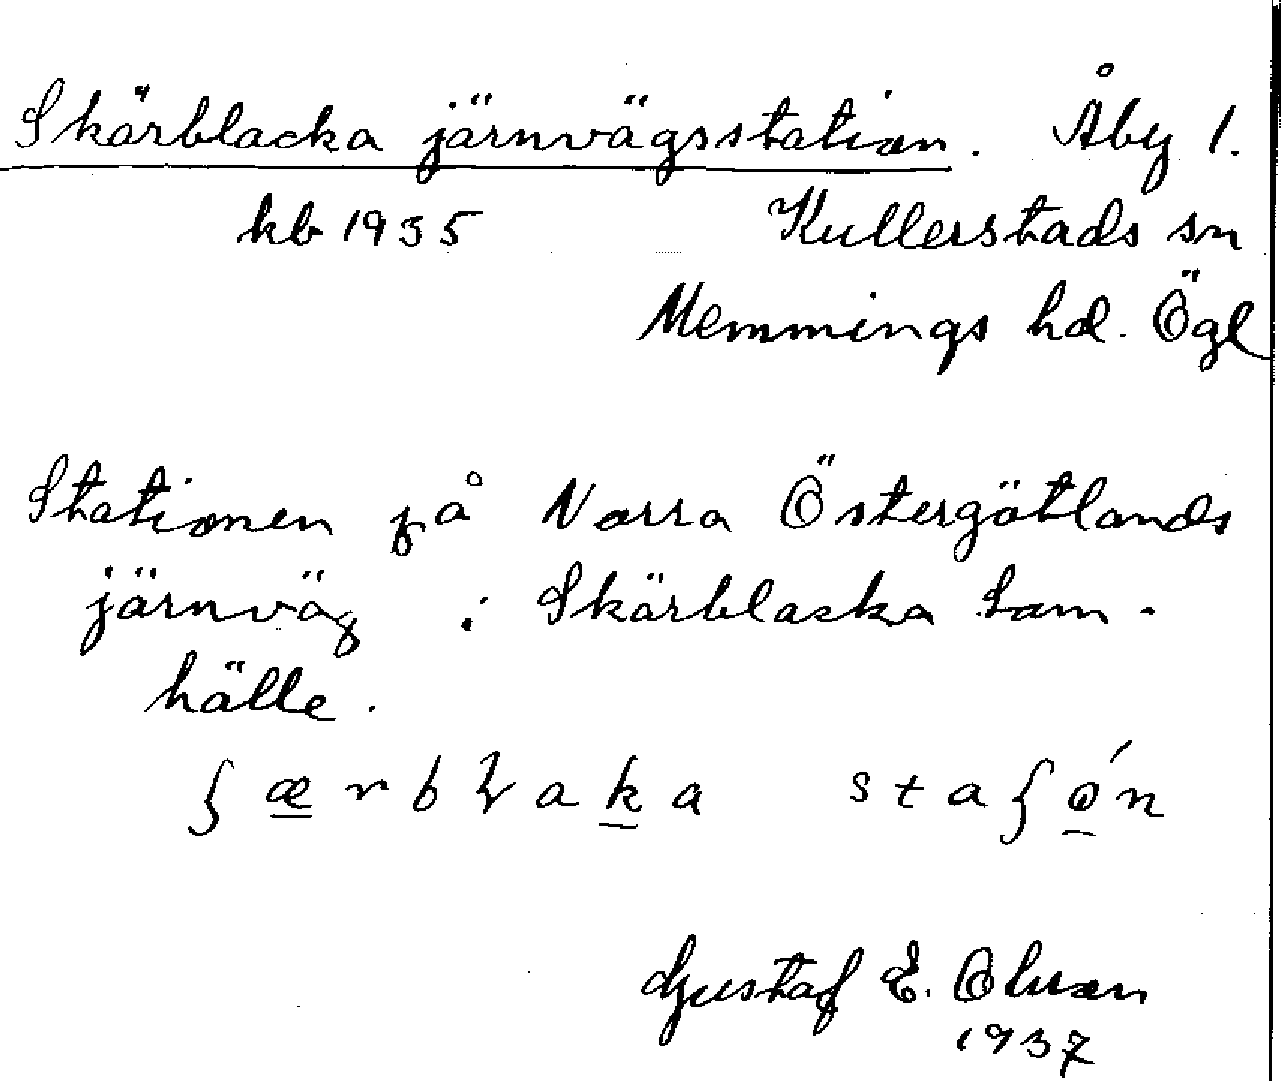 Skärblacka järnvägsstation. Åby 1.
kb 1935 Kullerstads sn
Memmings hd. Ögl
Stationen på Norra Östergötlands
järnväg i Skärblacka sam-
hälle.
ʃærbɽaka staʃón
Gustaf E. Olsson
1937